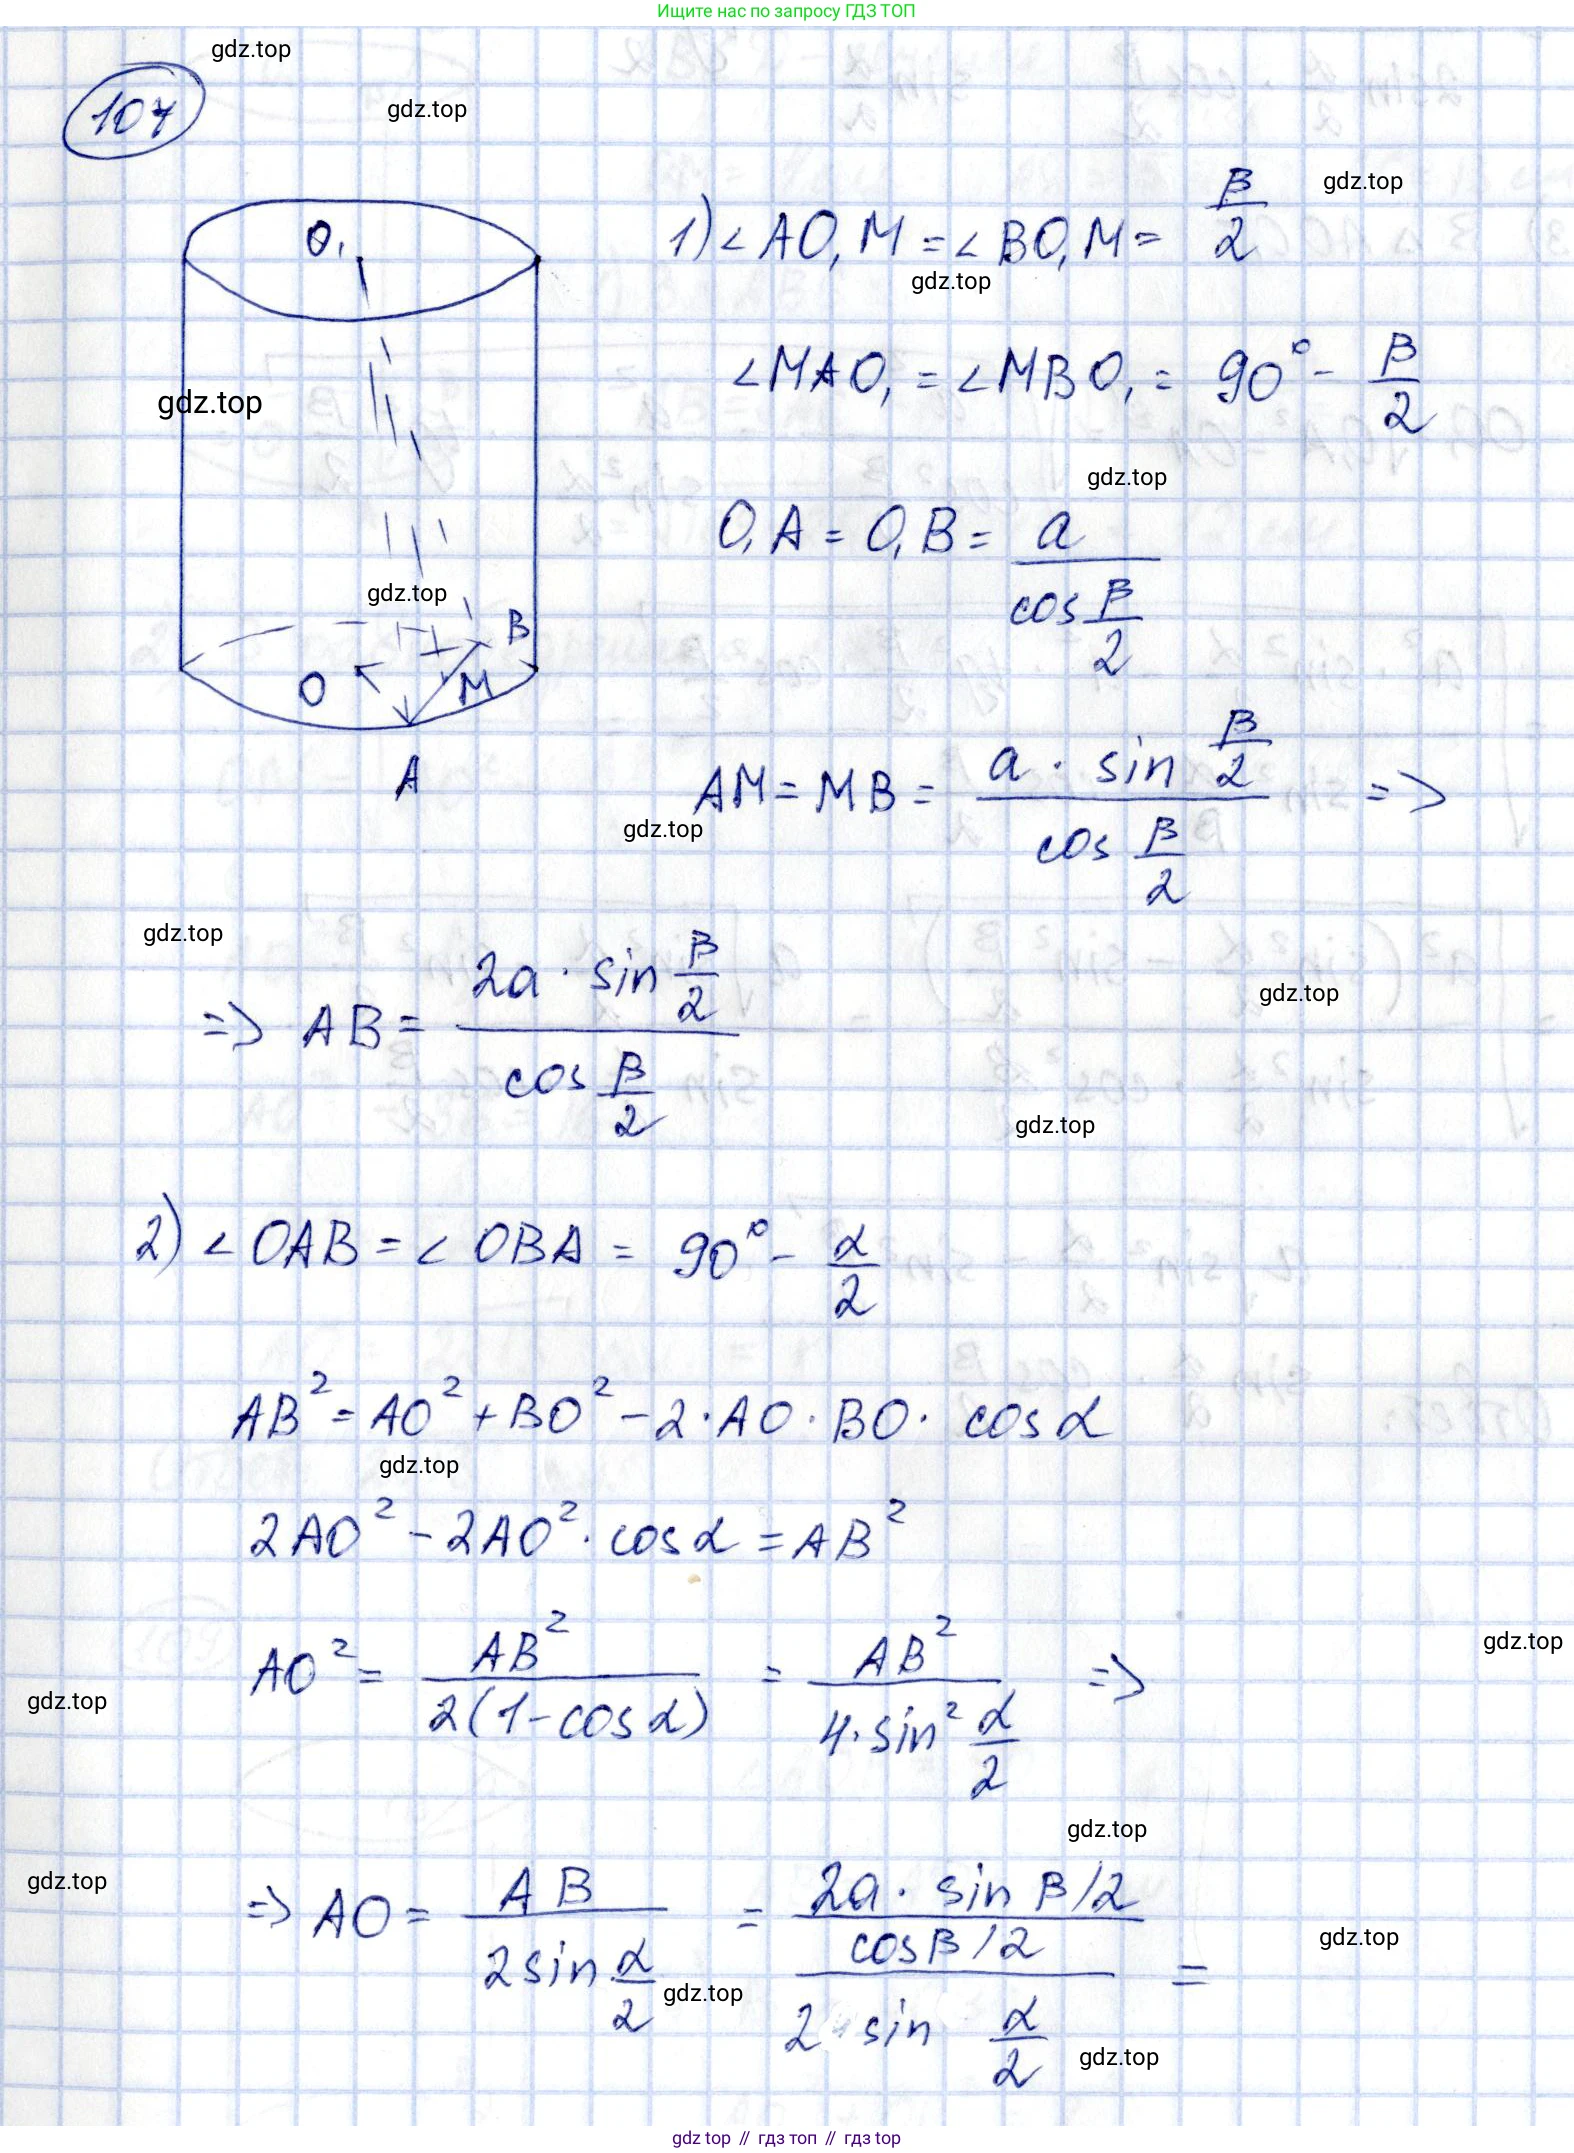 Ищите нас по запросу ГДЗ ТОП
gdz.top
107
gdz.top
O₁
gdz.top
1) ∠AO₁M = ∠BO₁M = β/2
gdz.top
∠MAO₁ = ∠MBO₁ = 90° - β/2
gdz.top
gdz.top
O₁A = O₁B = a / cos β/2
gdz.top
B
O
M
A
AM = MB = a · sin β/2 / cos β/2 =>
gdz.top
gdz.top
=> AB = 2a · sin β/2 / cos β/2
gdz.top
gdz.top
2) ∠OAB = ∠OBA = 90° - α/2
AB² = AO² + BO² - 2·AO·BO· cos α
gdz.top
2AO² - 2AO²· cos α = AB²
AO² = AB² / 2(1-cos α) = AB² / 4·sin² α/2 =>
gdz.top
gdz.top
gdz.top
gdz.top
=> AO = AB / 2 sin α/2 = 2a· sin β/2 / cos β/2 / 2 · sin α/2 =
gdz.top
gdz.top
gdz.top
gdz top // гдз топ // гдз top